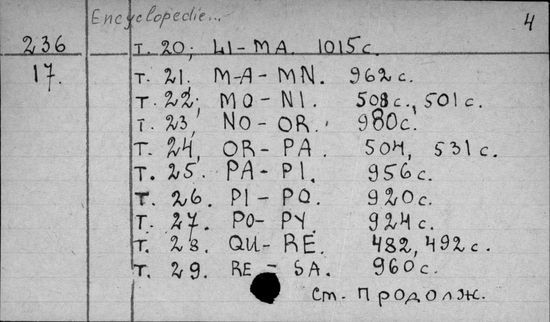 Encyclopedie... 4
236 т. 20; LI-MA. 1015 с.
17. т. 21. M-A-MN. 962 с.
т. 22; MO-NI. 508 с., 501 с.
т. 23, NO-OR. 980 с.
т. 24, OR-PA. 504, 531 с.
т. 25. PA-PI. 956 с.
т. 26. PI-PO. 920 с.
т. 27. PO-PY. 924 с.
т. 28. QU-RE. 482, 492 с.
т. 29. RE-SA. 960 с.
Ст. Продолж.